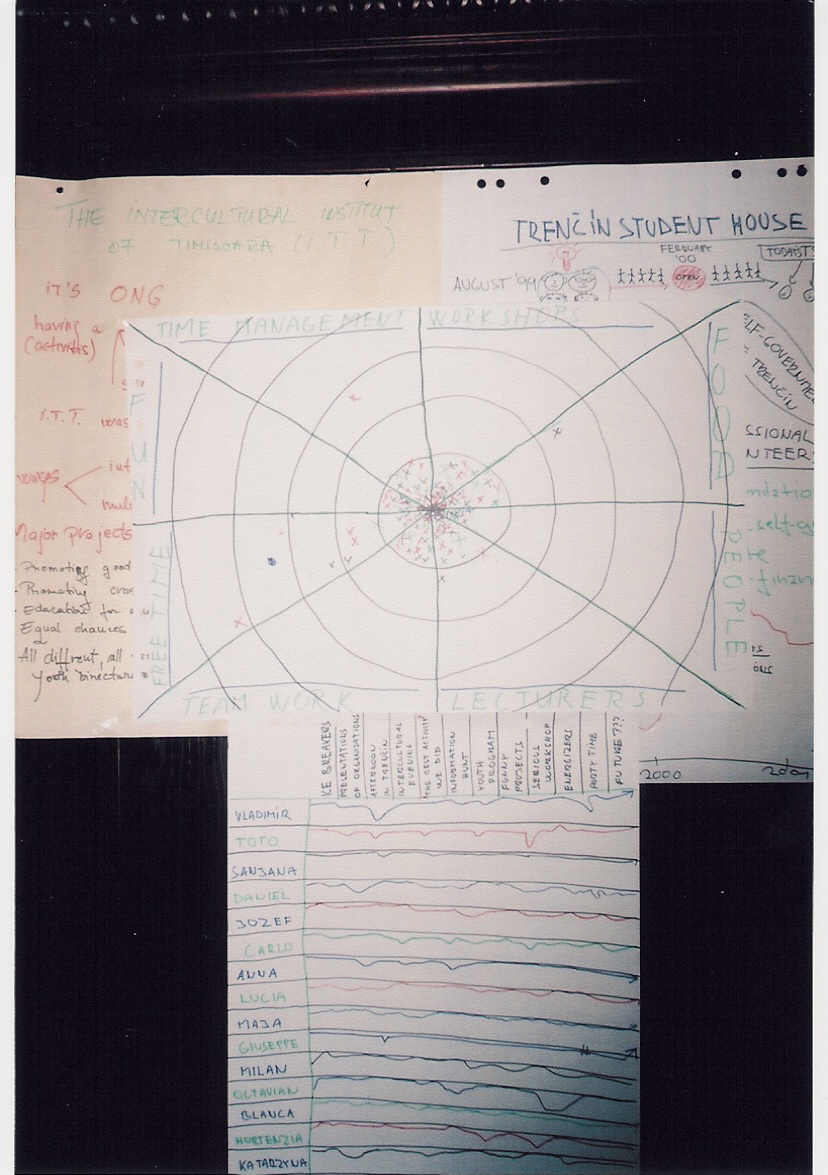 THE INTERCULTURAL INSTITUT
OF TIMISOARA (I.T.T)
IT'S ONG
having a
(activities)
I.T.T. was
int
mul
Major projects
- Promoting good
- Promoting cros
- Education for
Equal chances
All diffrent, all
Youth
TRENČÍN STUDENT HOUSE
FEBRUARY
'00
TODAY
AUGUST '99
OPEN
ELF-GOVERNME
TRENČÍN
SSIONAL
NTEER
ndatio
self-go
finan
2000
2001
TIME MANAGEMENT
WORKSHOPS
FUN
FOOD
FREE TIME
PEOPLE
TEAM WORK
LECTURERS
ICE BREAKERS
PRESENTATIONS
OF ORGANISATIONS
AFTERNOON
IN TRENČÍN
INTERCULTURAL
EVENING
THE BEST ACTIVITY
WE DID
INFORMATION
HUNT
YOUTH
PROGRAM
FUNNY
PROJECTS
SERIOUS
WORKSHOP
ENERGIZERS
PARTY TIME
FUTURE ???
VLADIMÍR
TOTO
SANJANA
DANIEL
JOZEF
CARLO
ANNA
LUCIA
MAJA
GIUSEPPE
MILAN
OCTAVIAN
BLANCA
HORTENZIA
KATARZYNA